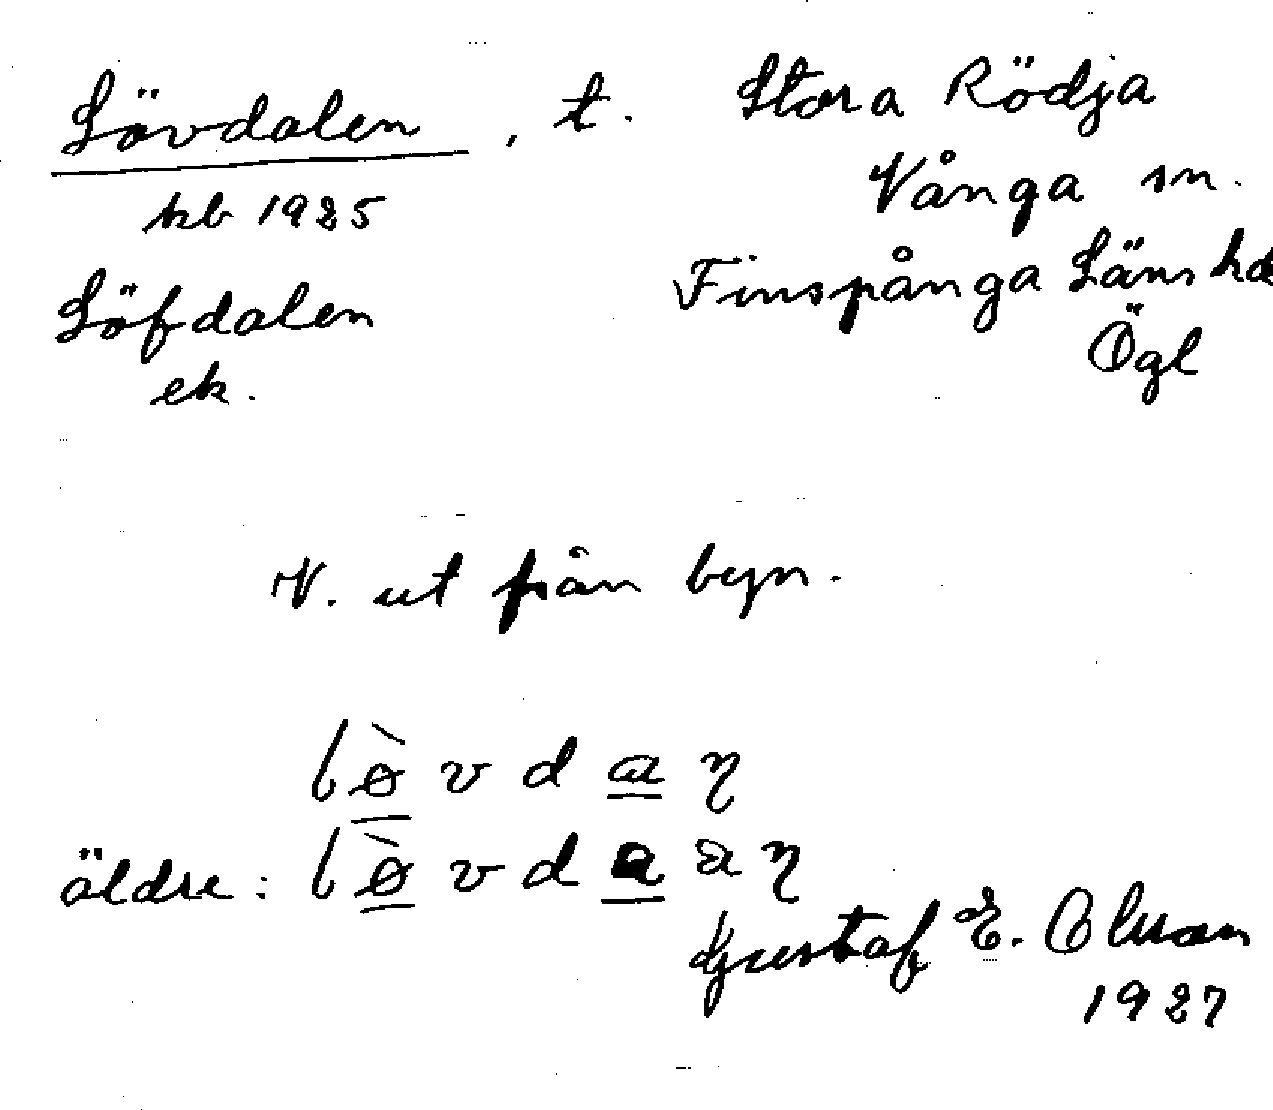 Lövdalen, t. Stora Rödja
kb 1925 Vånga sn.
Löfdalen Finspånga Läns hd
ek. Ögl
V. ut från byn.
lø̀vdaŋ
äldre: lø̀vdaaŋ
Gustaf E. Olsson
1927